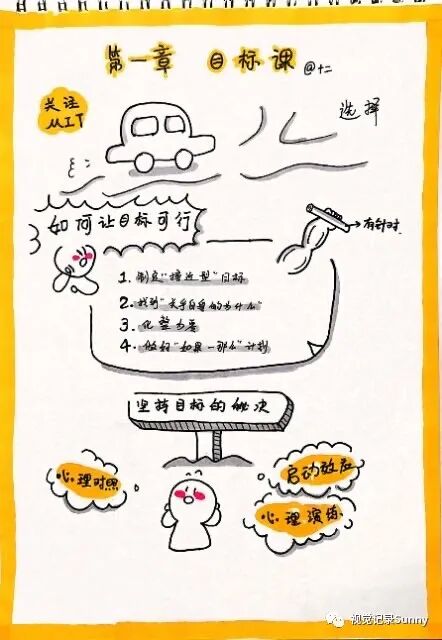 第一章 目标课 @十二
关注
从工丁
选择
如何让目标可行
有针对
1. 制定"接近型"目标
2. 找到"关乎自身的为什么"
3. 化整为零
4. 做好"如果一那么"计划
坚持目标的秘决
心理对照
启动效应
心理演练
视觉记录Sunny